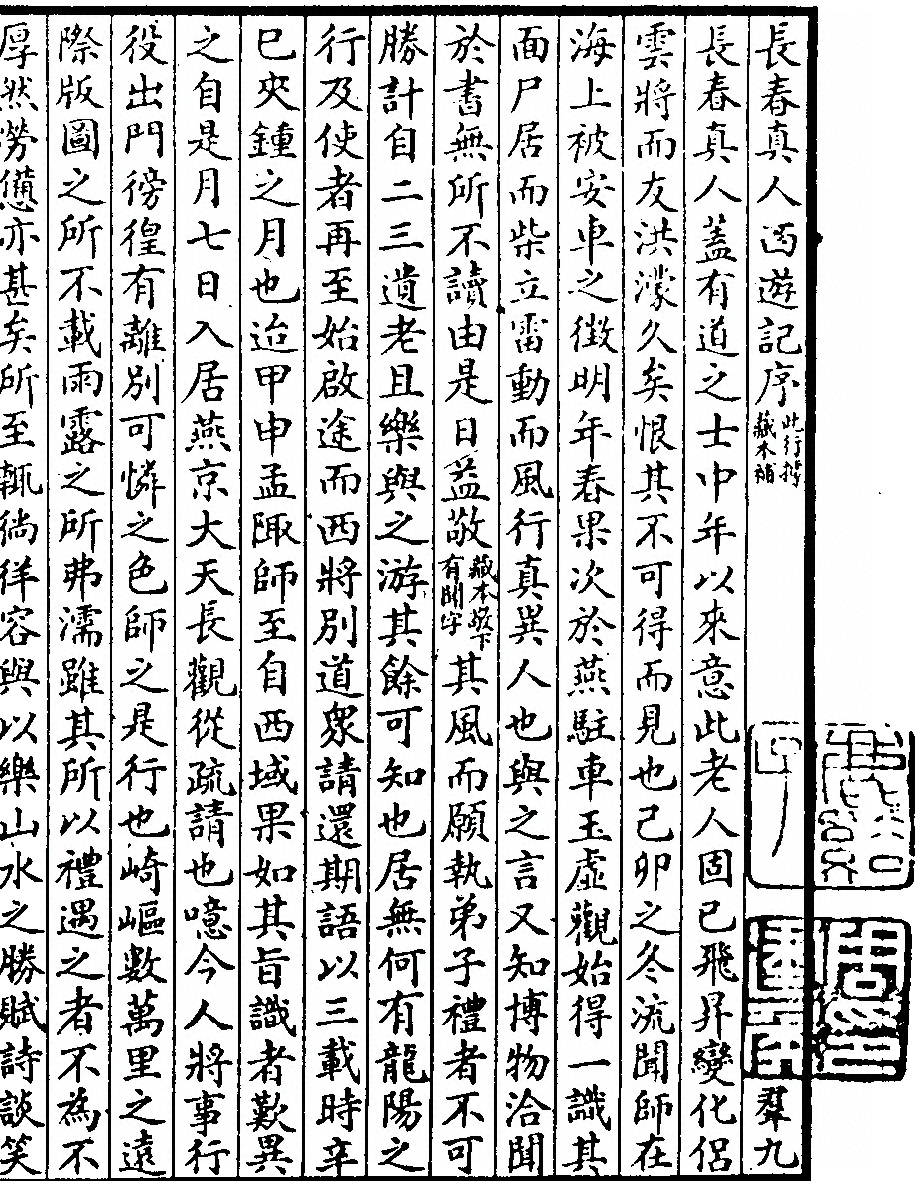 長春真人西遊記序此行據藏本補
長春真人蓋有道之士中年以來意此老人固已飛昇變化侶
雲將而友洪濛久矣恨其不可得而見也己卯之冬流聞師在
海上被安車之徵明年春果次於燕駐車玉虛觀始得一識其
面尸居而柴立雷動而風行真異人也與之言又知博物洽聞
於書無所不讀由是日益敬藏本敬下有聞字其風而願執弟子禮者不可
勝計自二三遺老且樂與之游其餘可知也居無何有龍陽之
行及使者再至始啟途而西將別道衆請還期語以三載時辛
巳夾鍾之月也迨甲申孟陬師至自西域果如其旨識者歎異
之自是月七日入居燕京大天長觀從疏請也噫今人將事行
役出門徬徨有離別可憐之色師之是行也崎嶇數萬里之遠
際版圖之所不載雨露之所弗濡雖其所以禮遇之者不為不
厚然勞憊亦甚矣所至輒徜徉容與以樂山水之勝賦詩談笑
羣九